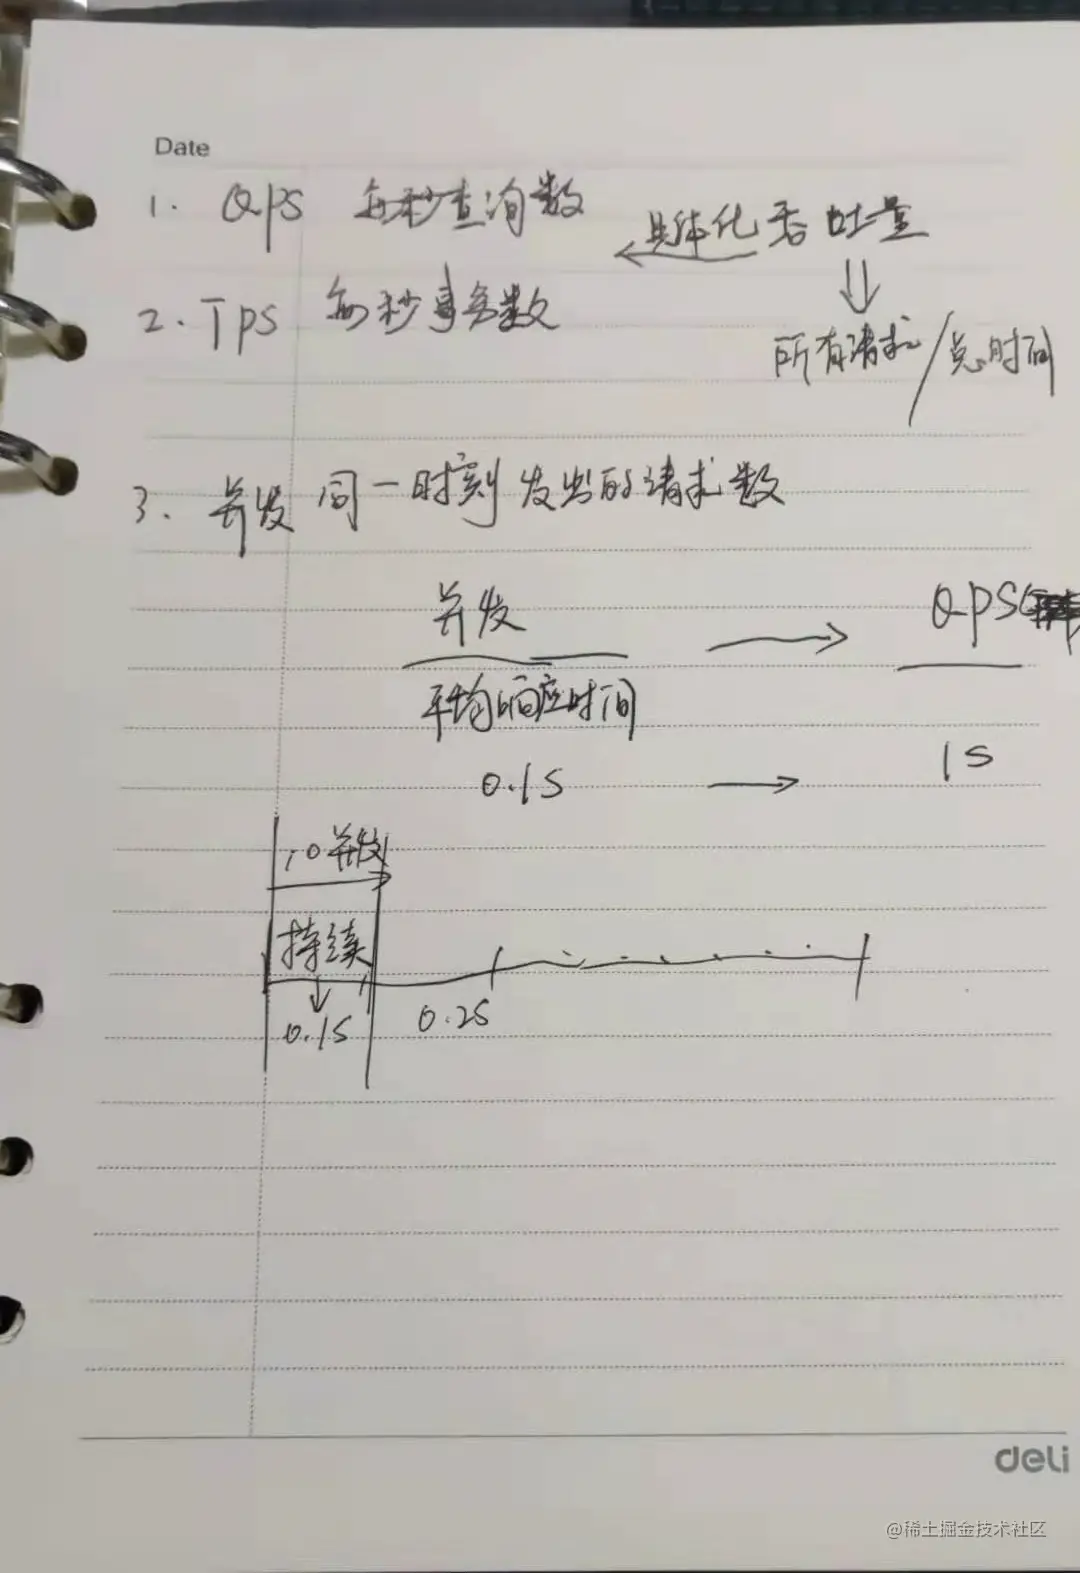 Date
1. QPS 每秒查询数
具体化 吞吐量
2. Tps 每秒事务数
所有请求/总时间
3. 并发 同一时刻发出的请求数
并发 QPS
平均响应时间
0.1S 1S
10并发
持续
0.1S 0.2S
deli
@稀土掘金技术社区